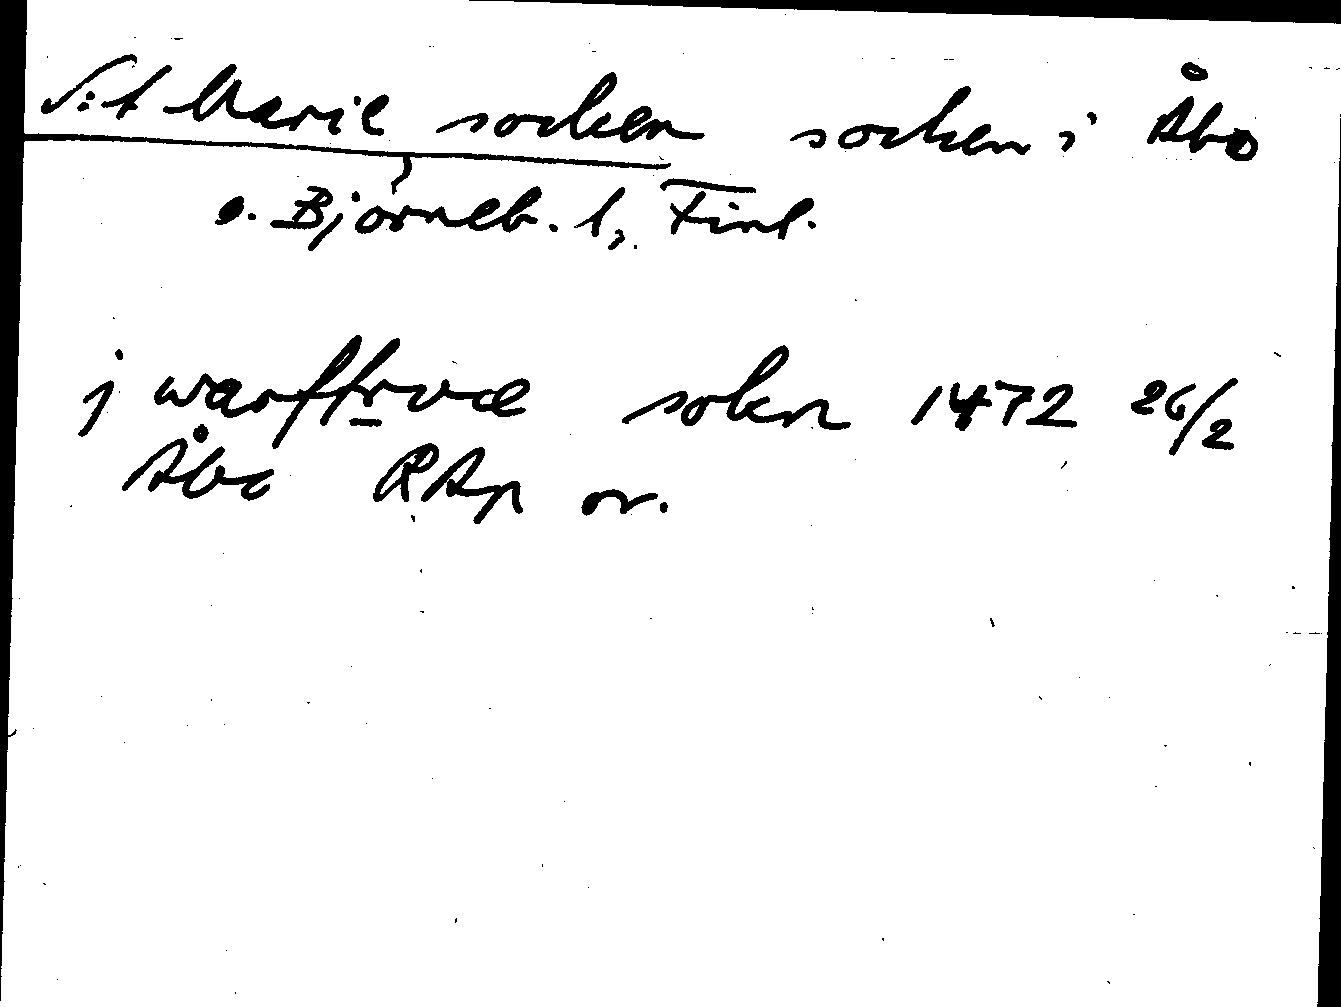 S:t Marie socken socken i Åbo
o. Björneb. l, Finl.
j warffrvæ sokn 1472 26/2
Åbo RAp or.